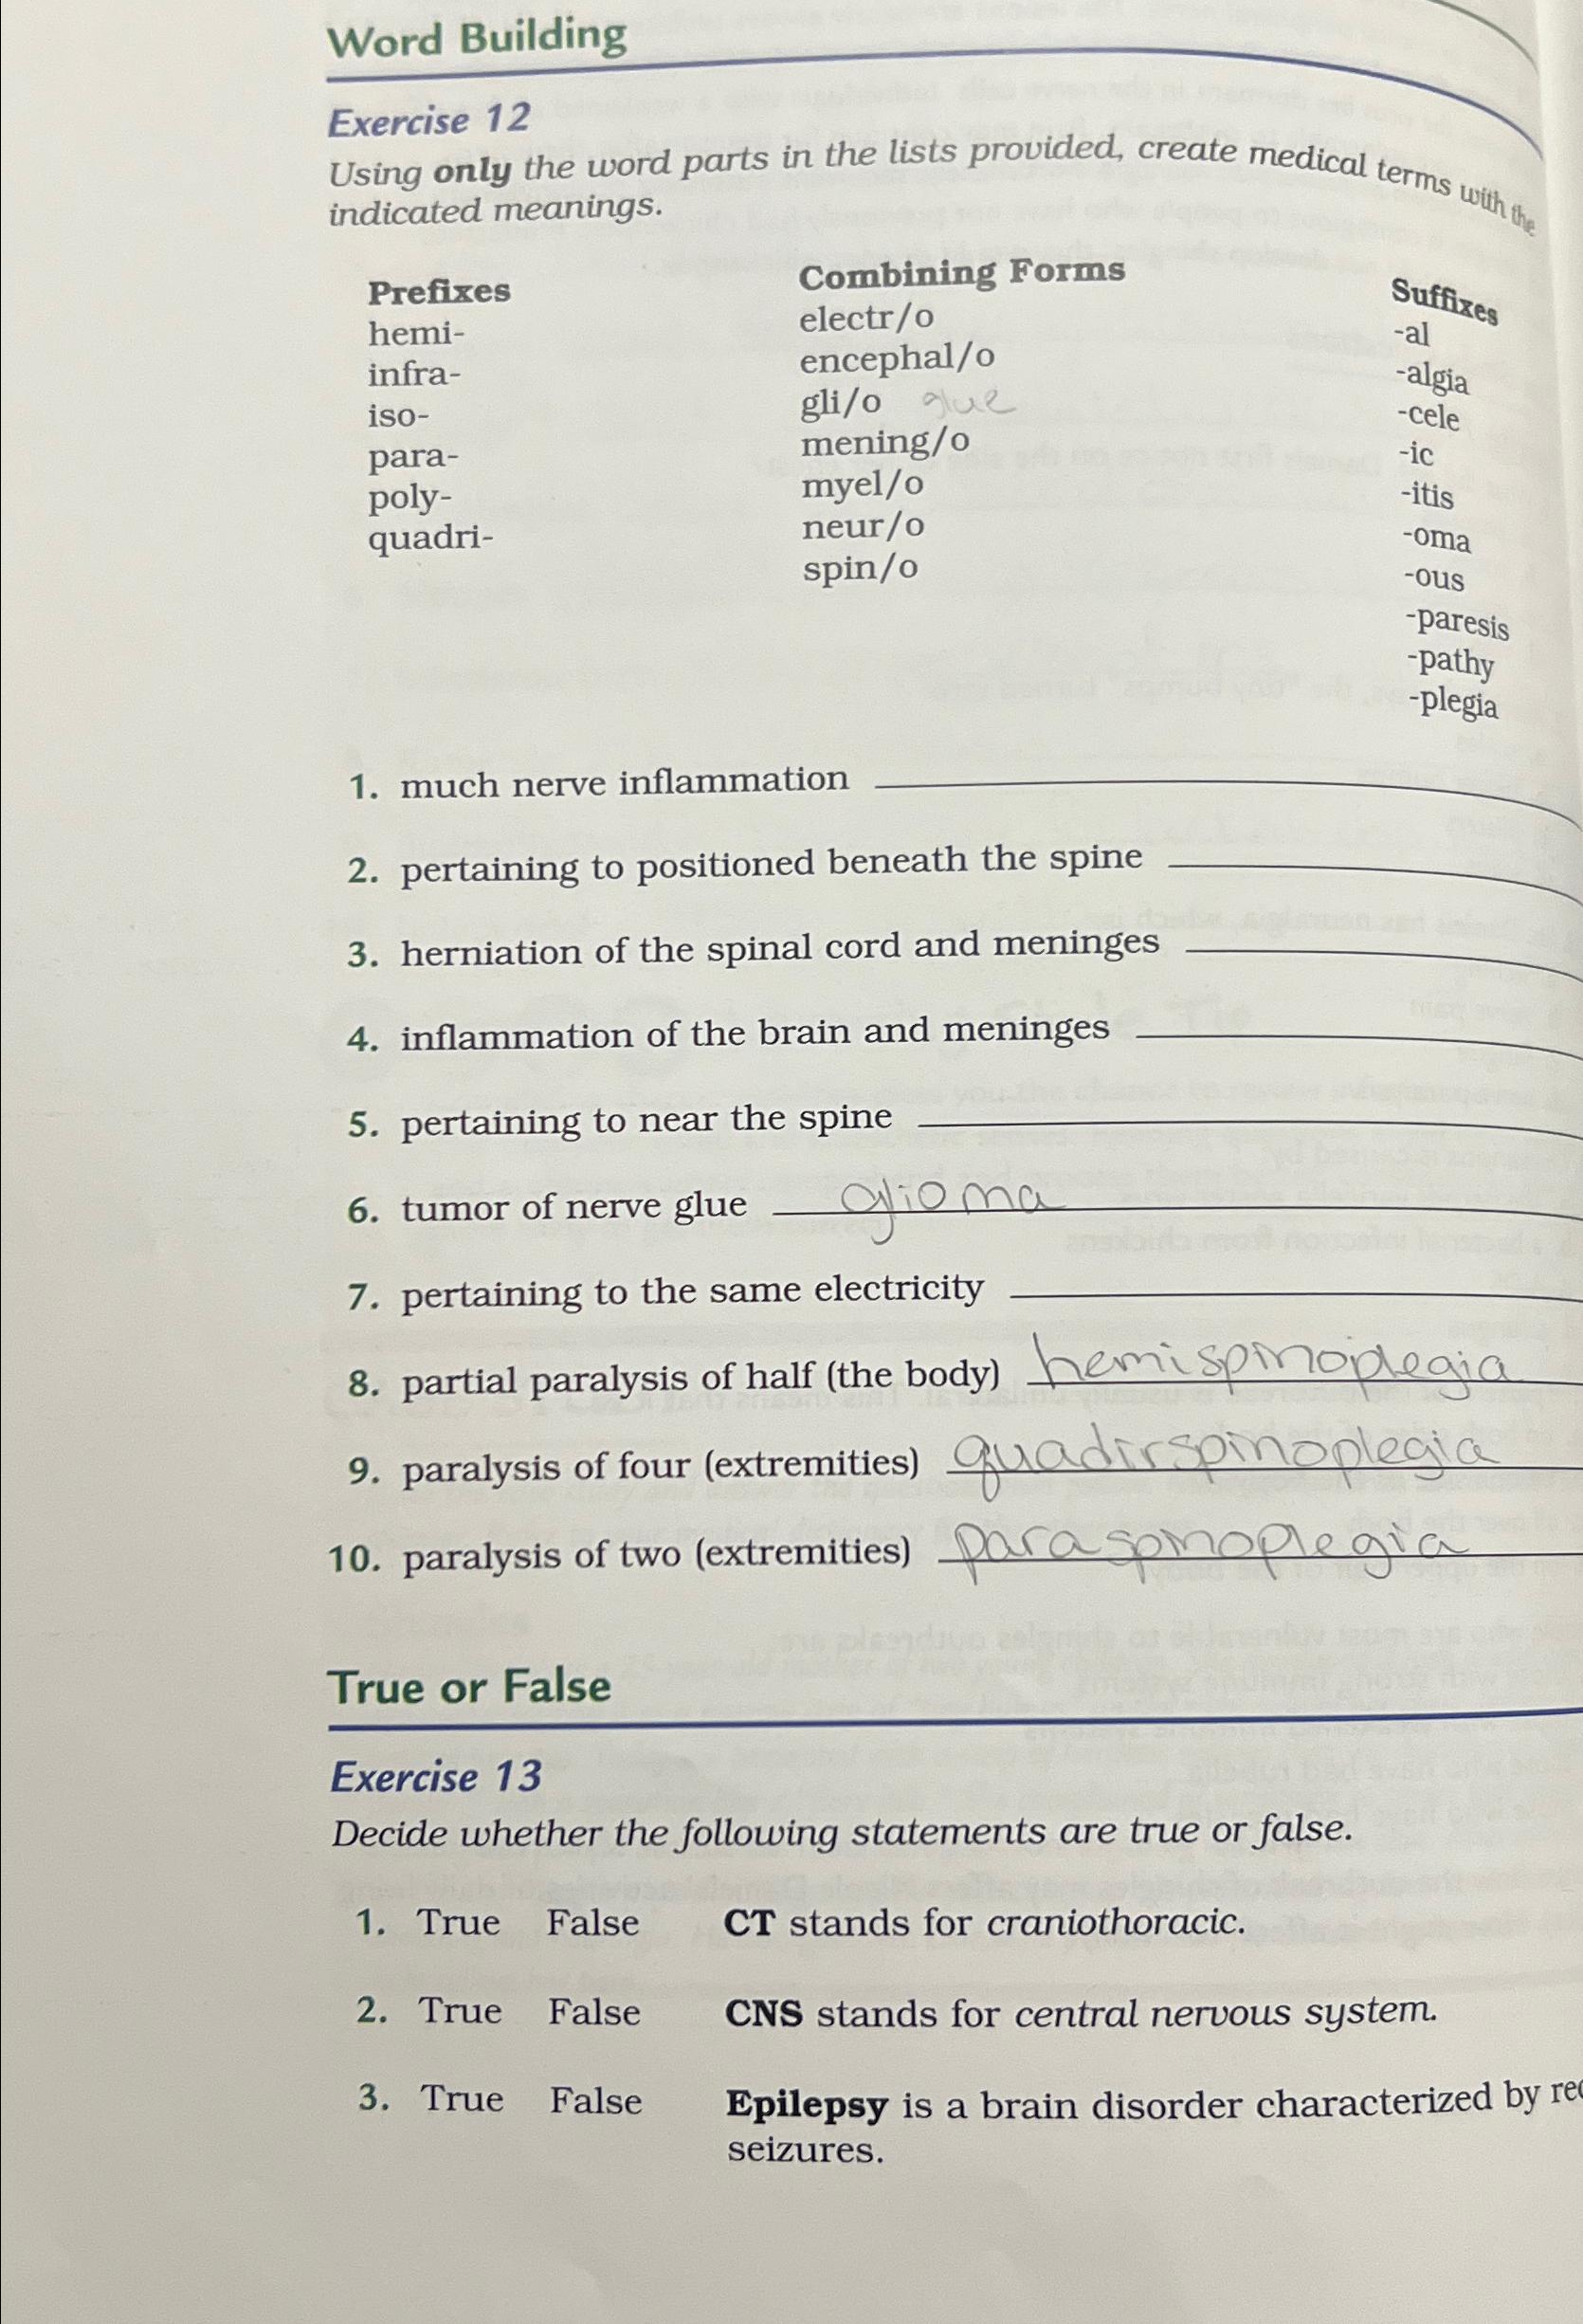 Word Building
Exercise 12
Using only the word parts in the lists provided, create medical terms with the
indicated meanings.
Prefixes
hemi-
infra-
iso-
para-
poly-
quadri-
Combining Forms
electr/o
encephal/o
gli/o glue
mening/o
myel/o
neur/o
spin/o
Suffixes
-al
-algia
-cele
-ic
-itis
-oma
-ous
-paresis
-pathy
-plegia
1. much nerve inflammation
2. pertaining to positioned beneath the spine
3. herniation of the spinal cord and meninges
4. inflammation of the brain and meninges
5. pertaining to near the spine
6. tumor of nerve glue glioma
7. pertaining to the same electricity
8. partial paralysis of half (the body) hemispinoplegia
9. paralysis of four (extremities) quadirspinoplegia
10. paralysis of two (extremities) paraspinoplegia
True or False
Exercise 13
Decide whether the following statements are true or false.
1. True False CT stands for craniothoracic.
2. True False CNS stands for central nervous system.
3. True False Epilepsy is a brain disorder characterized by rec
seizures.